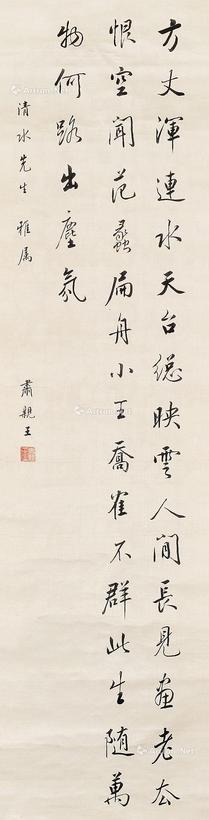 方丈渾連水天台總映雲人間長見畫老去
恨空聞范蠡扁舟小王喬雀不群此生隨萬
物何路出塵氛
清水先生雅属
肅親王